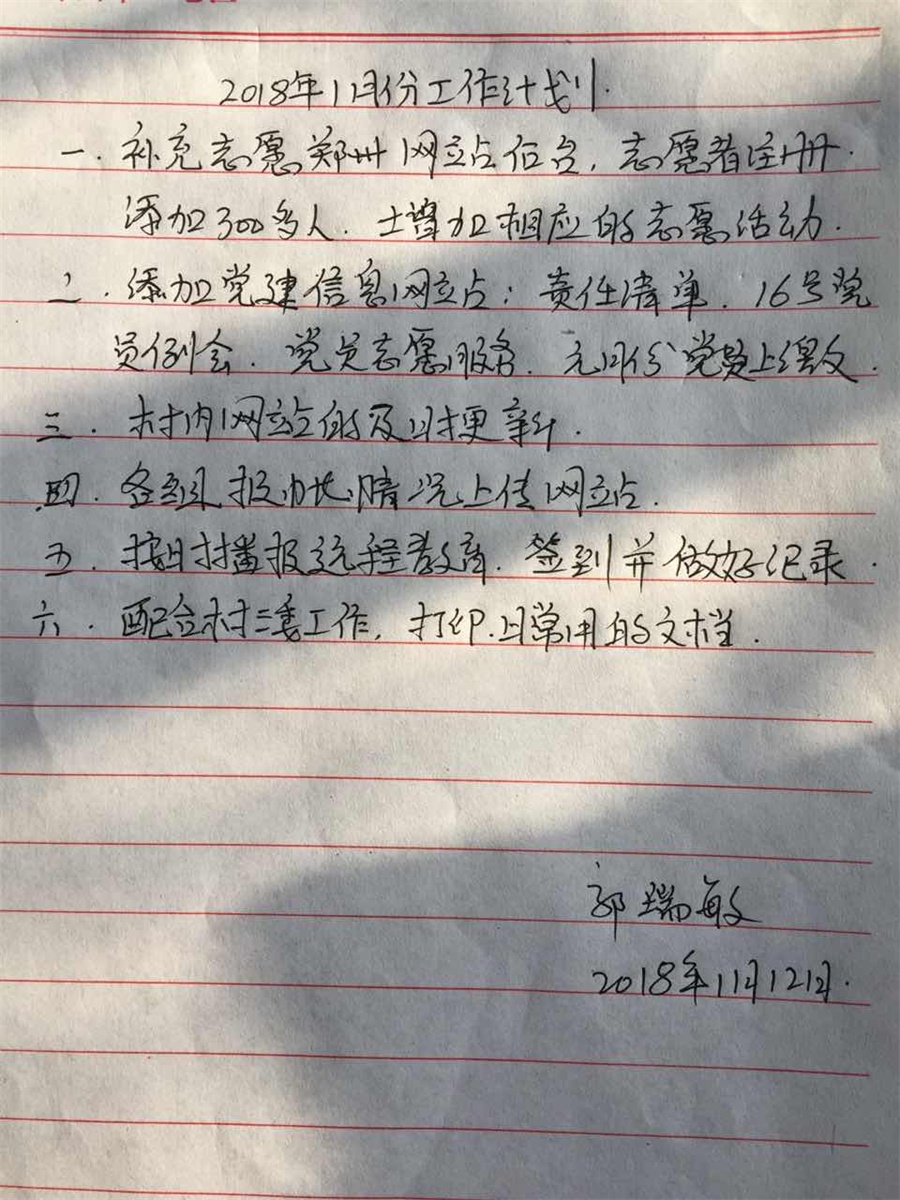 2018年11月份工作计划.
一.补充志愿郑州网站后台,志愿者注册.
添加300多人.增加相应的志愿活动.
二.添加党建信息网站:责任清单.16号党
员例会.党员志愿服务.元月份党费上缴
三.村内网站的及时更新.
四.各组报办比情况上传网站.
五.按时播报远程教育.签到并做好记录.
六.配合村三委工作,打印日常用的文档.
郭瑞敏
2018年11月12日.